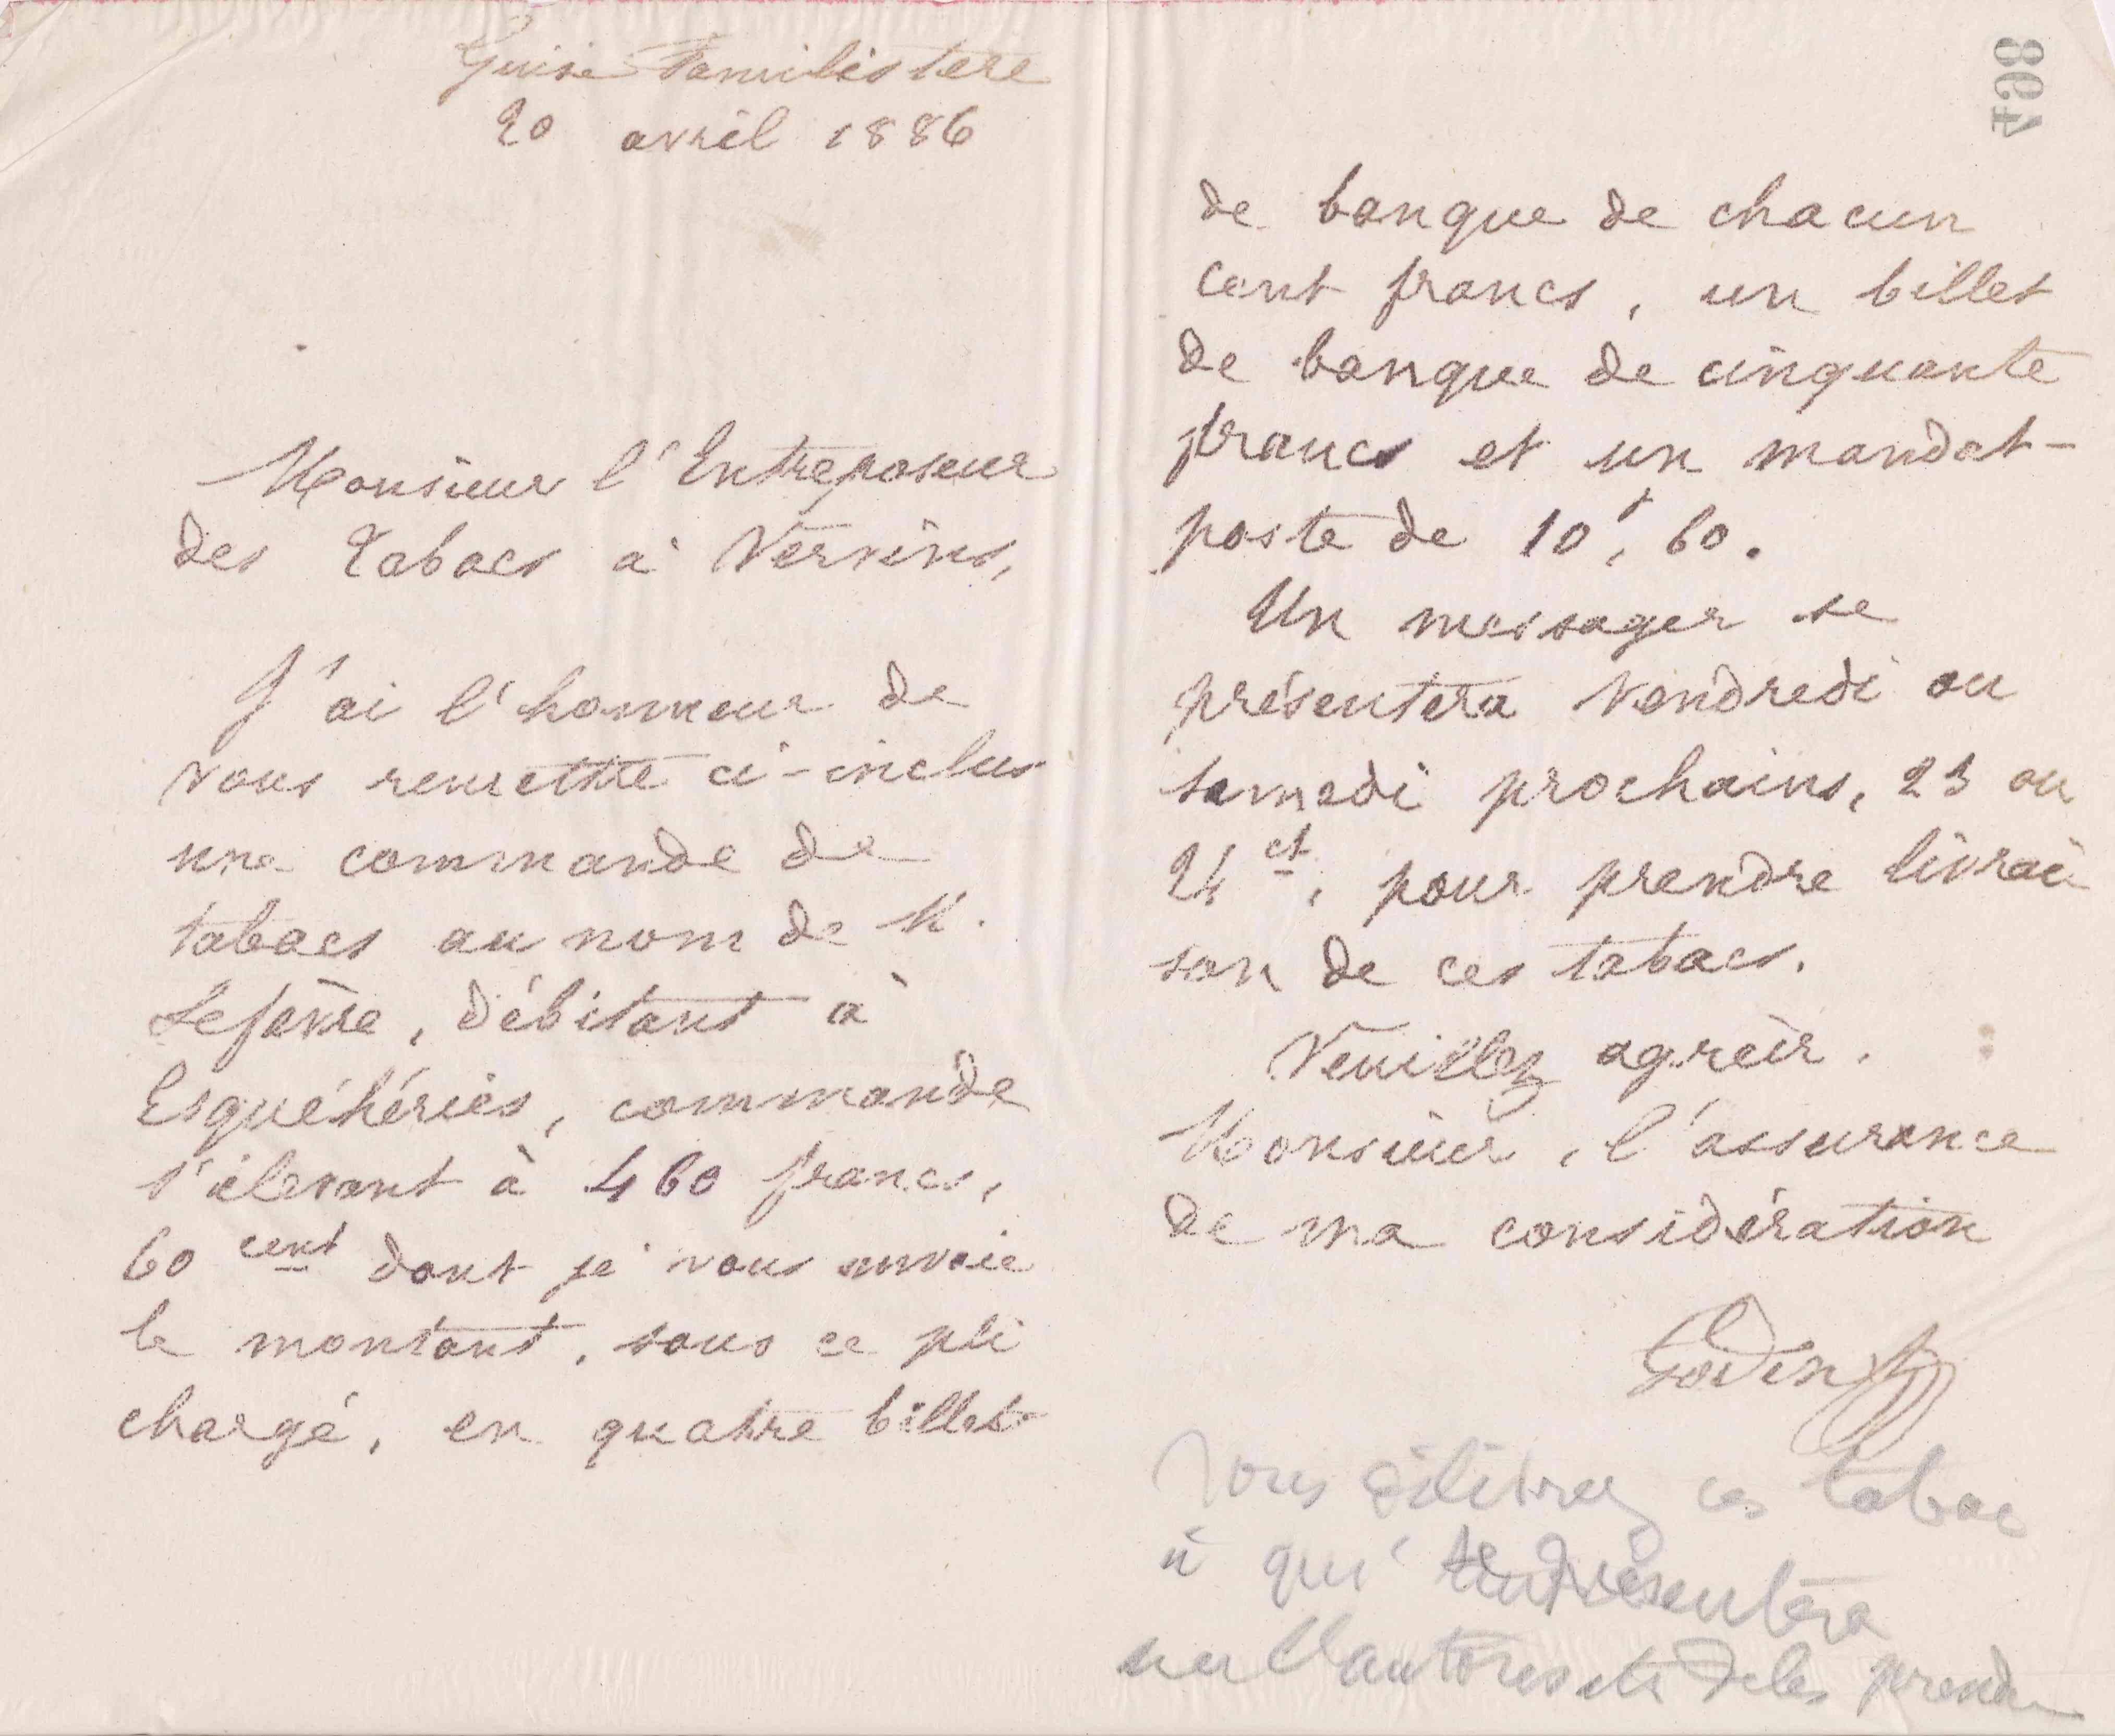 Guise Familistère
20 avril 1886
Monsieur l'Entreposeur
des Tabacs à Vervins,
J'ai l'honneur de
vous remettre ci-inclus
une commande de
tabacs au nom de M.
Lefèvre, débitant à
Esquéhéries, commande
s'élevant à 460 francs,
60 cent dont je vous envoie
le montant, sous ce pli
chargé, en quatre billets
864
de banque de chacun
cent francs, un billet
de banque de cinquante
francs et un mandat-
poste de 10f, 60.
Un messager se
présentera vendredi ou
samedi prochains, 23 ou
24 ct, pour prendre livrai
son de ces tabacs.
Veuillez agréer,
Monsieur, l'assurance
de ma considération
Godin
Vous délivrez ces tabac
à qui présentera
l'autorisat de les prendre